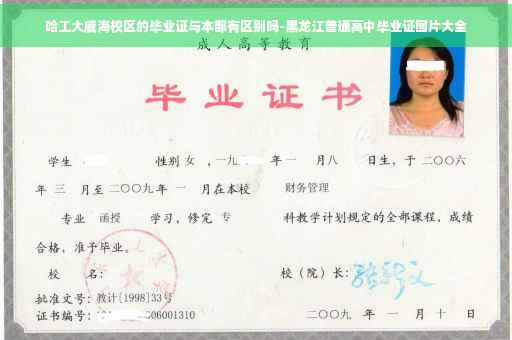 哈工大威海校区的毕业证与本部有区别吗-黑龙江普通高中毕业证图片大全
成人高等教育
毕业证书
学生 性别 女 ，一九 年 一 月八 日生，于 二〇〇六
年 三 月至 二〇〇九年 一 月在本校 财务管理
专业 函授 学习，修完 专 科教学计划规定的全部课程，成绩
合格，准予毕业。
校 名： 校（院）长：
批准文号：教计[1998]33号
证书编号： 06001310 二〇〇九 年 一 月 十 日